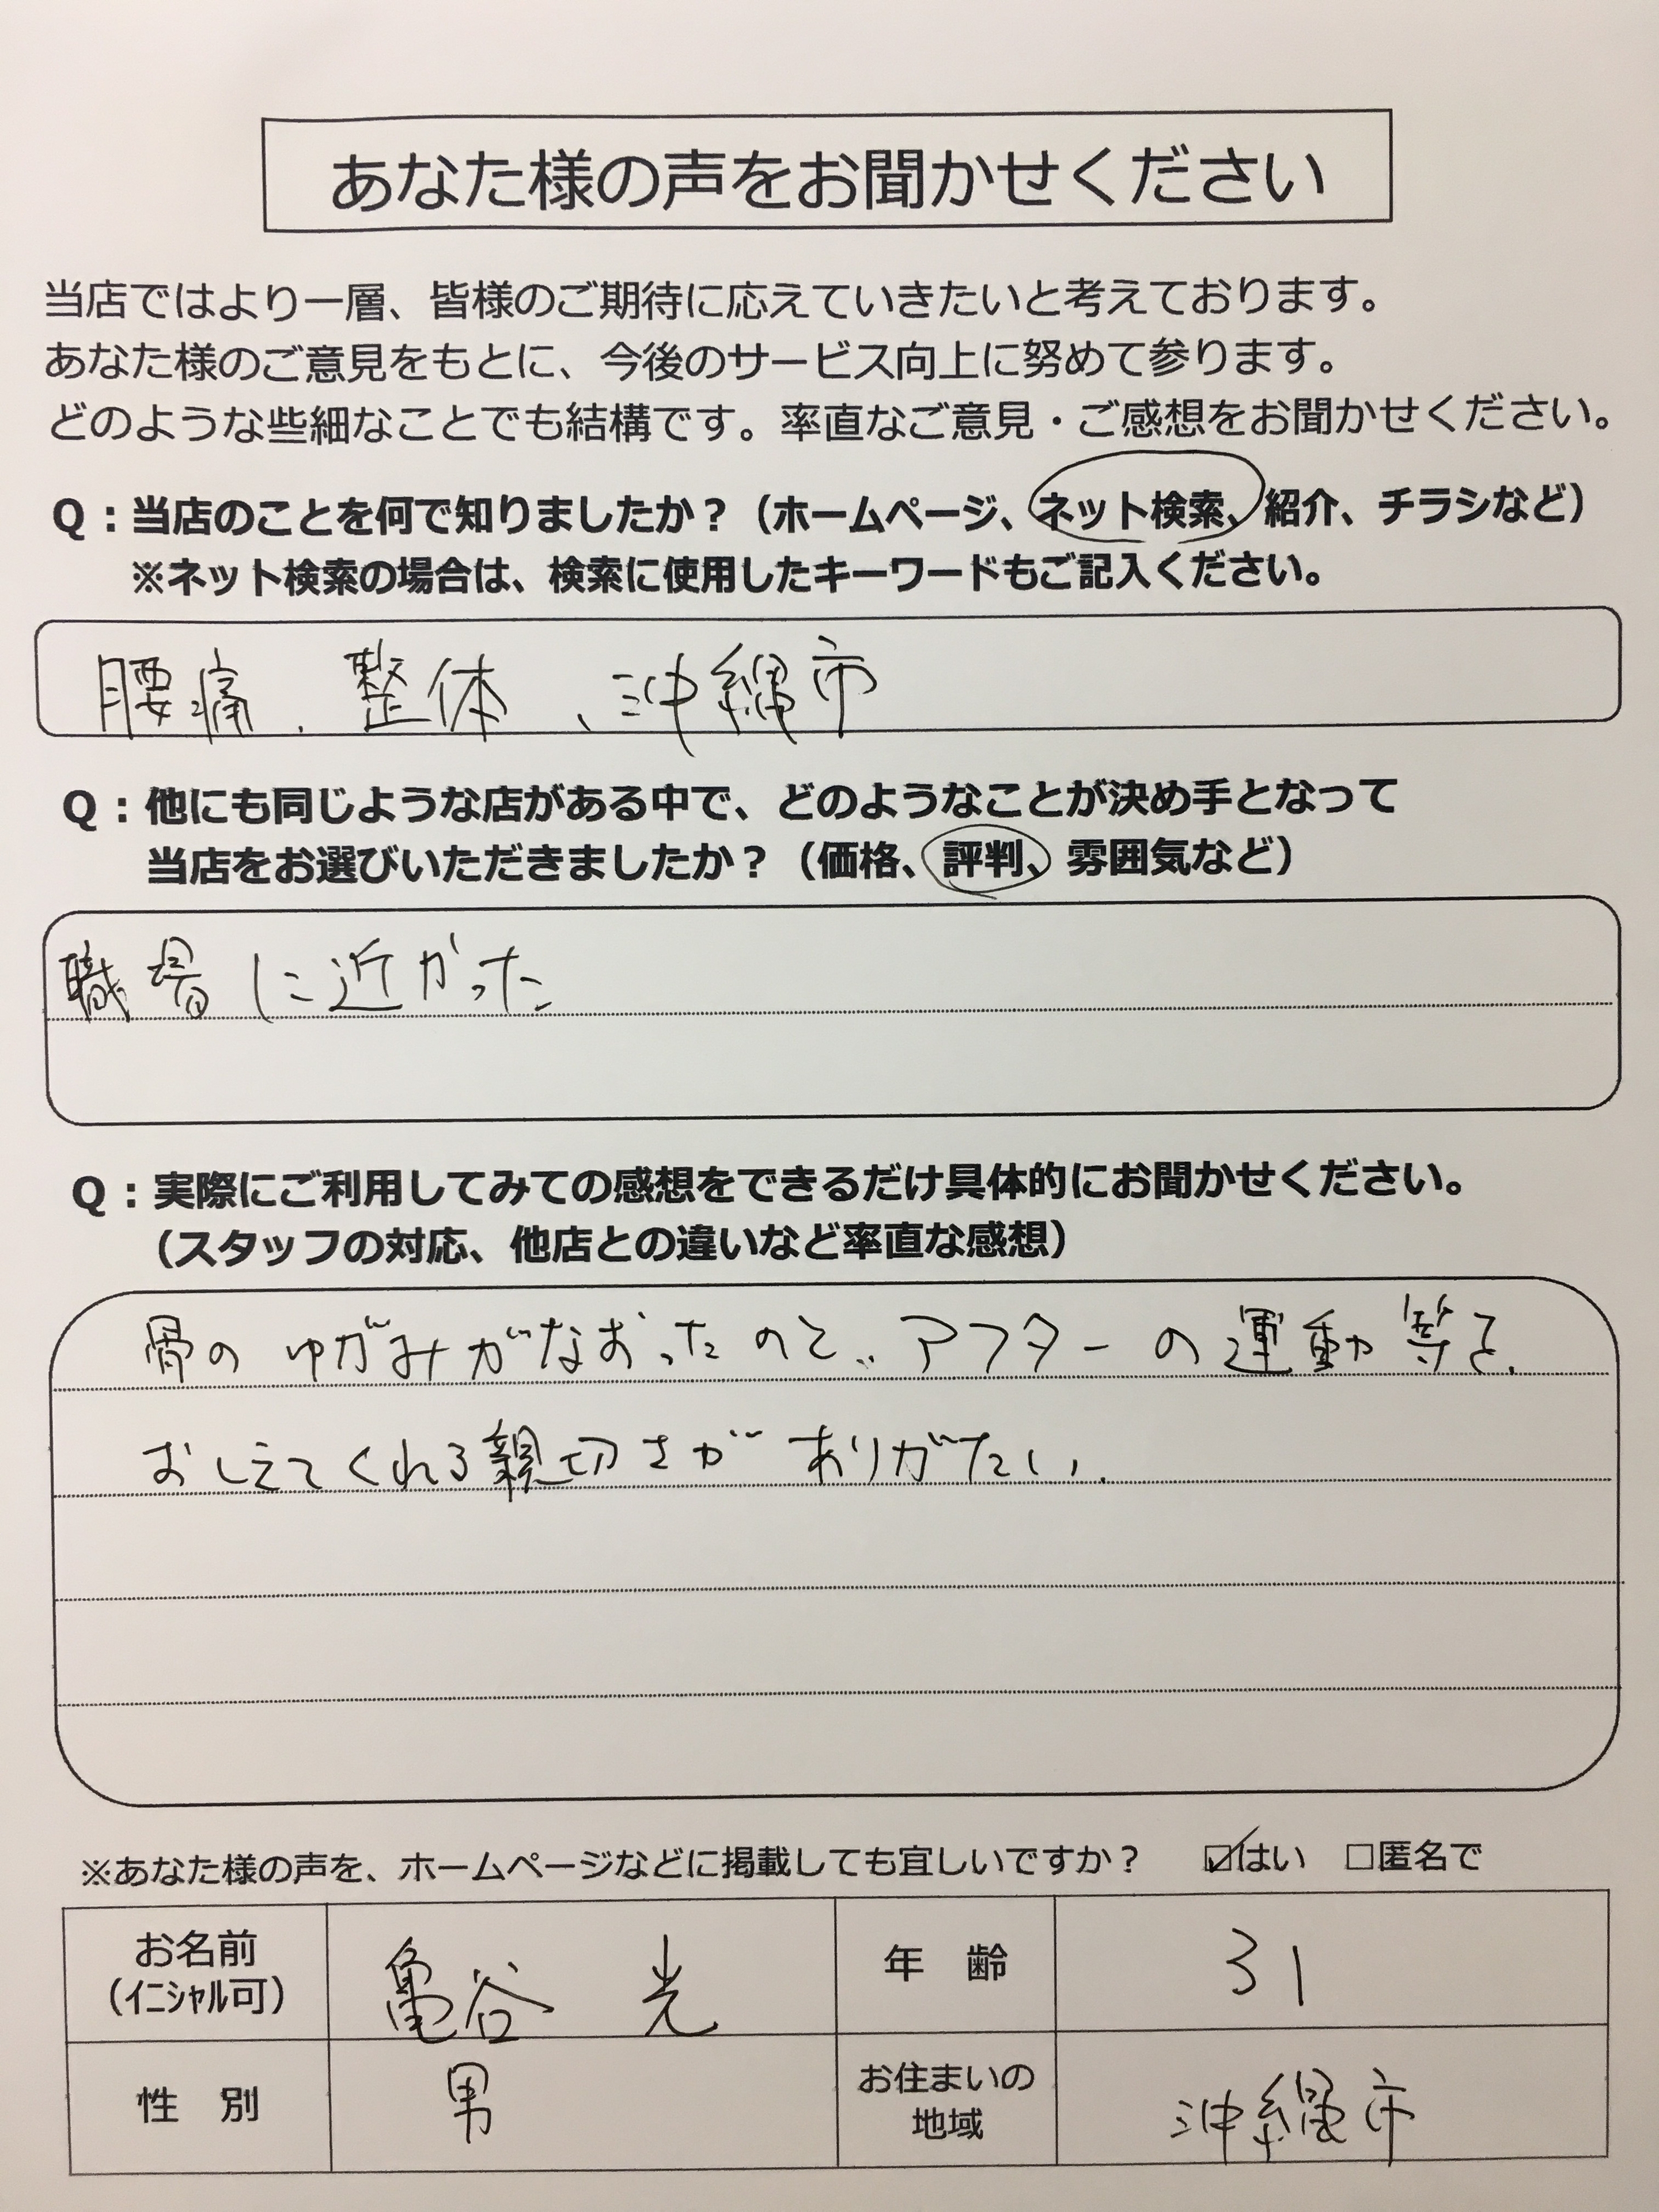 あなた様の声をお聞かせください
当店ではより一層、皆様のご期待に応えていきたいと考えております。
あなた様のご意見をもとに、今後のサービス向上に努めて参ります。
どのような些細なことでも結構です。率直なご意見・ご感想をお聞かせください。
Q：当店のことを何で知りましたか？（ホームページ、ネット検索、紹介、チラシなど）
※ネット検索の場合は、検索に使用したキーワードもご記入ください。
腰痛、整体、沖縄市
Q：他にも同じような店がある中で、どのようなことが決め手となって
当店をお選びいただきましたか？（価格、評判、雰囲気など）
職場に近かった
Q：実際にご利用してみての感想をできるだけ具体的にお聞かせください。
（スタッフの対応、他店との違いなど率直な感想）
骨のゆがみがなおったのと、アフターの運動等を、
おしえてくれる親切さがありがたい。
※あなた様の声を、ホームページなどに掲載しても宜しいですか？ ☑はい □匿名で
お名前 亀谷 光 年 齢 31
（ｲﾆｼｬﾙ可）
性 別 男 お住まいの 沖縄市
地域